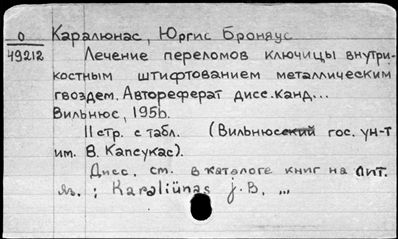 О
49212
Каралюнас, Юргис Броняус
Лечение переломов ключицы внутри-
костным штифтованием металлическим
гвоздем. Автореферат дисс. канд...
Вильнюс, 1956.
11 стр. с табл. (Вильнюсский гос. ун-т
им. В. Капсукас).
Дисс. см. в каталоге книг на лит.
яз. : Karaliūnas J. B. ...